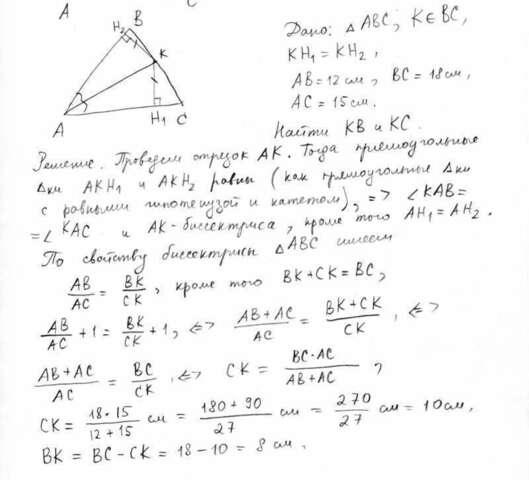 A
C
B
H₂
K
A
H₁
C
Дано: △ABC; K∈BC,
KH₁ = KH₂,
AB = 12 см, BC = 18 см,
AC = 15 см.
Найти KB и KC.
Решение. Проведем отрезок AK. Тогда прямоугольные
△ки AKH₁ и AKH₂ равны (как прямоугольные △ки
с равными гипотенузой и катетом), => ∠KAB =
= ∠KAC и AK - биссектриса, кроме того AH₁ = AH₂.
По свойству биссектрисы △ABC имеем
AB/AC = BK/CK, кроме того BK + CK = BC,
AB/AC + 1 = BK/CK + 1, <=> (AB + AC)/AC = (BK + CK)/CK, <=>
(AB + AC)/AC = BC/CK, <=> CK = (BC · AC)/(AB + AC),
CK = (18 · 15)/(12 + 15) см = (180 + 90)/27 см = 270/27 см = 10 см,
BK = BC - CK = 18 - 10 = 8 см.